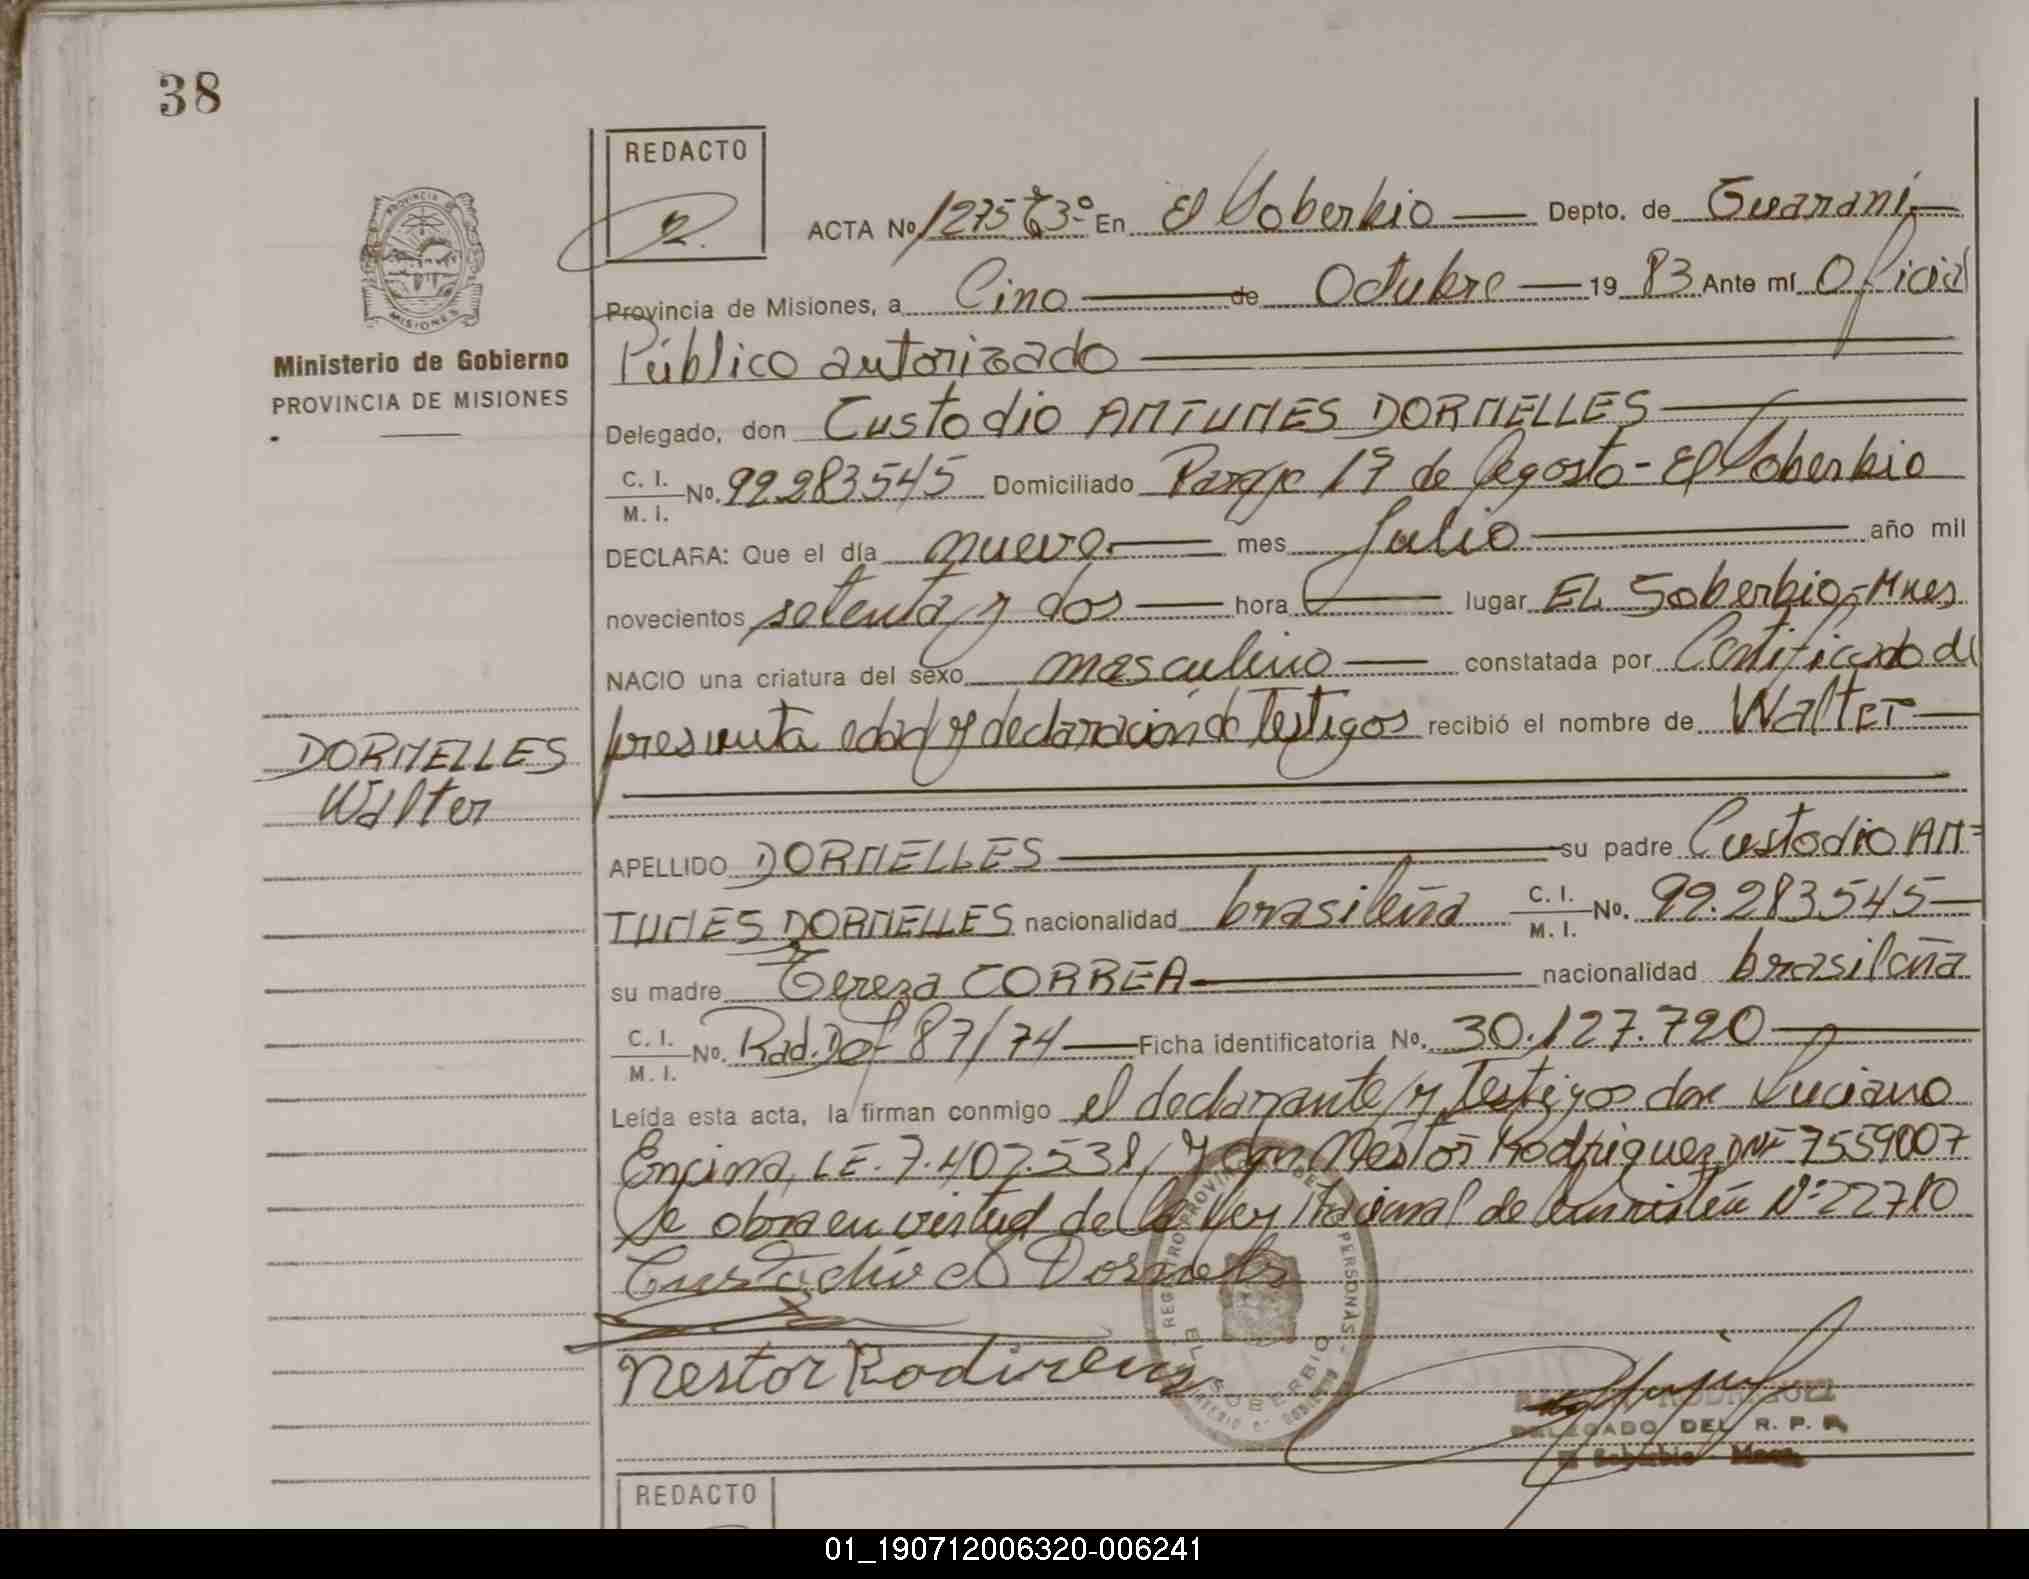 38
REDACTO
PROVINCIA DE
MISIONES
Ministerio de Gobierno
PROVINCIA DE MISIONES
ACTA Nº 1275 Tº 3º En El Soberbio Depto. de Guaraní
Provincia de Misiones, a Cino de Octubre 19 83 Ante mí Oficial
Público autorizado
Delegado, don Custodio ANTUNES DORNELLES
C. I. M. I. Nº. 99.283545 Domiciliado Paraje 17 de Agosto - El Soberbio
DECLARA: Que el día nueve mes Julio año mil
novecientos setenta y dos hora lugar EL Soberbio - Mnes
NACIO una criatura del sexo masculino constatada por Certificado de
presunta edad y declaración de Testigos recibió el nombre de Walter
DORNELLES
Walter
APELLIDO DORNELLES su padre Custodio AN=
TUNES DORNELLES nacionalidad brasileña C. I. M. I. Nº. 99.283545
su madre Tereza CORREA nacionalidad brasileña
C. I. M. I. Nº. Rad. Def 87/74 Ficha identificatoria Nº. 30.127.720
Leída esta acta, la firman conmigo el declarante y Testigos don Luciano
Encina, LE. 7.407.538, y don Nestor Rodriguez DNI 7559007
Se obra en virtud de la Ley Nacional de Nº 22710
Dornels
Nestor
REGISTRO PROVINCIAL DE PERSONAS
EL SOBERBIO
RODRIGUEZ
DELEGADO DEL R. P. P.
El Soberbio - Mnes.
REDACTO
01_190712006320-006241